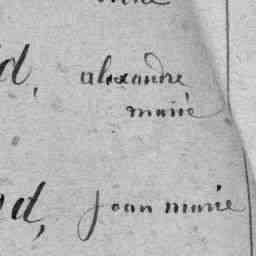 d, alexandre
marie
d, jean marie